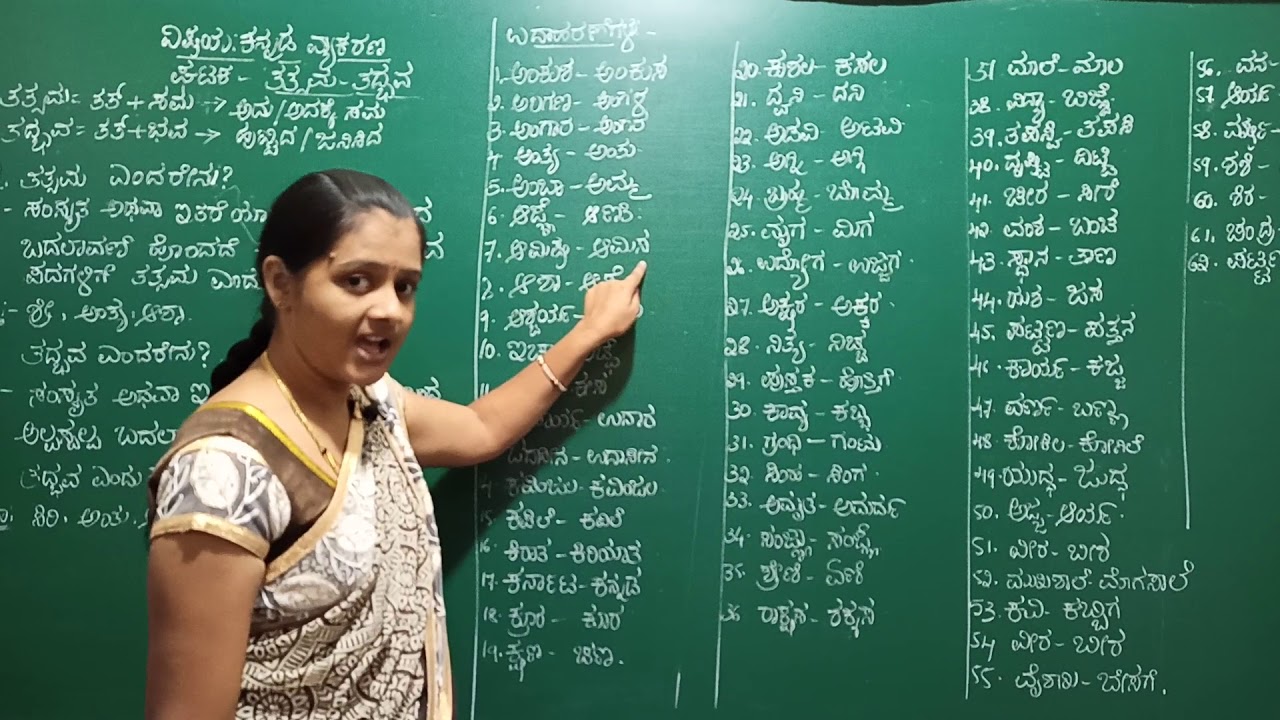 ವಿಷಯ: ಕನ್ನಡ ವ್ಯಾಕರಣ
ಘಟಕ - ತತ್ಸಮ - ತದ್ಭವ
ತತ್ಸಮ = ತತ್ + ಸಮ → ಅದು/ಅದಕ್ಕೆ ಸಮ
ತದ್ಭವ = ತತ್ + ಭವ → ಹುಟ್ಟಿದ / ಜನಿಸಿದ
ತತ್ಸಮ ಎಂದರೇನು?
- ಸಂಸ್ಕೃತ ಅಥವಾ ಇತರೆ
ಬದಲಾವಣೆ ಹೊಂದದೆ
ಪದಗಳಿಗೆ ತತ್ಸಮ
ಶ್ರೀ, ಅಂತ್ಯ, ಆಶಾ
ತದ್ಭವ ಎಂದರೇನು?
- ಸಂಸ್ಕೃತ ಅಥವಾ ಇ
ಅಲ್ಪಸ್ವಲ್ಪ
ತದ್ಭವ ಎಂದು
ಸಿರಿ, ಅಂತು,
ಉದಾಹರಣೆಗಳು -
1. ಅಂಕುಶ - ಅಂಕುಸ
2. ಅಂಗಣ - ಅಂಗಳ
3. ಅಂಗಾರ - ಅಂಗರ
4. ಅಂತ್ಯ - ಅಂತು
5. ಅಂಬಾ - ಅಮ್ಮ
6. ಆಜ್ಞೆ - ಆಣತಿ
7. ಆಮಿಷ - ಆಮಿಸ
8. ಆಶಾ - ಆಸೆ
9. ಆಶ್ಚರ್ಯ -
10.
ಉದಾರ
ಉದಾಸೀನ
15. ಕಪಿಲೆ - ಕವಿಲೆ
16. ಕಿರಾತ - ಕಿರಿಯಾತ
17. ಕರ್ನಾಟ - ಕನ್ನಡ
18. ಕ್ರೂರ - ಕೂರ
19. ಕ್ಷಣ - ಚಣ.
20. ಕುಶಲ - ಕುಸಲ
21. ಧ್ವನಿ - ದನಿ
22. ಅಡವಿ - ಅಟವಿ
23. ಅಗ್ನಿ - ಅಗ್ಗಿ
24. ಬ್ರಹ್ಮ - ಬೊಮ್ಮ
25. ಮೃಗ - ಮಿಗ
26. ಉದ್ಯೋಗ - ಉಜ್ಜುಗ
27. ಅಕ್ಷರ - ಅಕ್ಕರ
28. ನಿತ್ಯ - ನಿಚ್ಚ
29. ಪುಸ್ತಕ - ಹೊತ್ತಗೆ
30. ಕಾವ್ಯ - ಕಬ್ಬ
31. ಗ್ರಂಥಿ - ಗಂಟು
32. ಸಿಂಹ - ಸಿಂಗ
33. ಅಮೃತ - ಅಮರ್ದು
34. ಸಂಧ್ಯಾ - ಸಂಜೆ
35. ಶ್ರೇಣಿ - ಏಣಿ
36 ರಾಕ್ಷಸ - ರಕ್ಕಸ
37 ಮಾಲೆ - ಮಾಲ
38. ವಿದ್ಯಾ - ಬಿಜ್ಜೆ
39. ತಪಸ್ವಿ - ತಪಸಿ
40. ದೃಷ್ಟಿ - ದಿಟ್ಟಿ
41. ಚೀರ - ಸೀರೆ
42. ವಂಶ - ಬಂಚ
43. ಸ್ಥಾನ - ತಾಣ
44. ಯಶ - ಜಸ
45. ಪಟ್ಟಣ - ಪತ್ತನ
46. ಕಾರ್ಯ - ಕಜ್ಜ
47. ವರ್ಣ - ಬಣ್ಣ
48. ಕೋಕಿಲ - ಕೋಗಿಲೆ
49. ಯುದ್ಧ - ಜುದ್ಧ
50. ಅಜ್ಜ - ಆರ್ಯ.
51. ವೀರ - ಬೀರ
52. ಮುಖಶಾಲೆ ಮೊಗಸಾಲೆ
53. ಕವಿ - ಕಬ್ಬಿಗ
54 ವೀರ - ಬೀರ
55. ವೈಶಾಖ - ಬೇಸಗೆ.
56.
57. ಆರ್ಯ
58.
59. ಶಶಿ -
60. ಶಿರ -
61. ಚಂದ್ರ
62. ಪಟ್ಟಣ